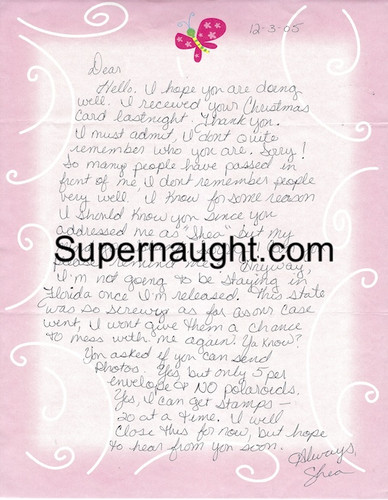 12-3-05
Dear
Hello. I hope you are doing
well. I received your Christmas
card lastnight. Thank you.
I must admit, I dont quite
remember who you are. Sorry!
So many people have passed in
front of me I dont remember people
very well. I know for some reason
I should know you since you
addressed me as "Shea" but my
Supernaught.com
remind me. Anyway,
I'm not going to be staying in
Florida once I'm released. This state
was so screwy as far as our case
went, I wont give them a chance
to mess with me again. Ya know?
You asked if you can send
photos. Yes but only 5 per
envelope & NO polaroids.
Yes, I can get stamps —
20 at a time. I will
close this for now, but hope
to hear from you soon.
Always,
Shea